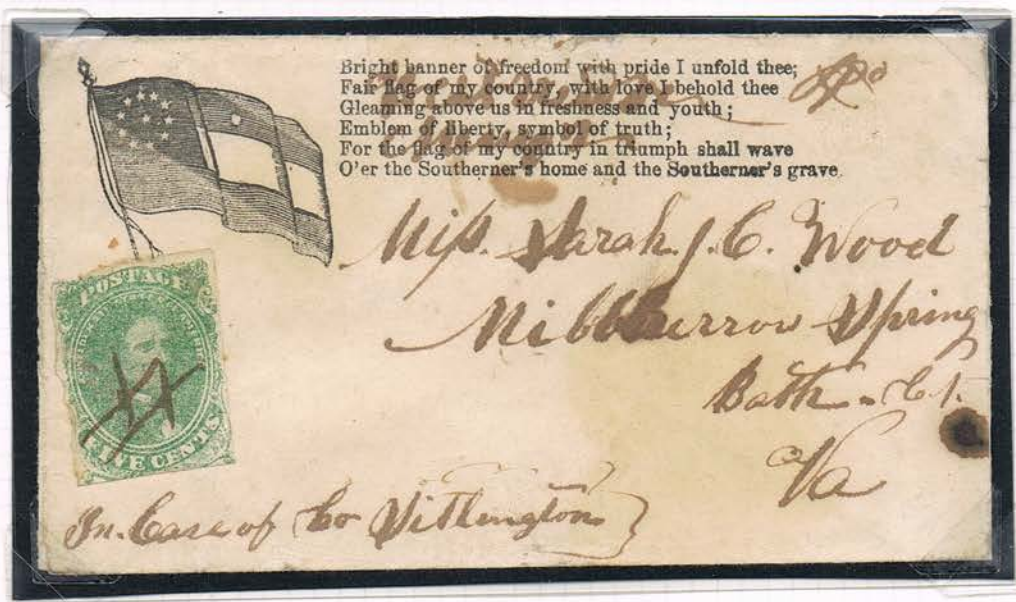 Bright banner of freedom with pride I unfold thee;
Fair flag of my country, with love I behold thee
Gleaming above us in freshness and youth;
Emblem of liberty, symbol of truth;
For the flag of my country in triumph shall wave
O'er the Southerner's home and the Southerner's grave.
Miss. Sarah. J. C. Wood
Spring
Bath - Ct.
Va
POSTAGE
FIVE CENTS
In. Care of Co